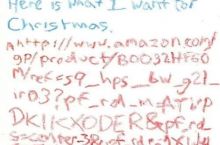 Here is what I want for
Christmas.
http://www.amazon.com/
gp/product/B0032HF60
M/ref=s9_hps_bw_g21_
ir03?pf_rd_m=ATVP
DKIKX0DER&pf_rd_